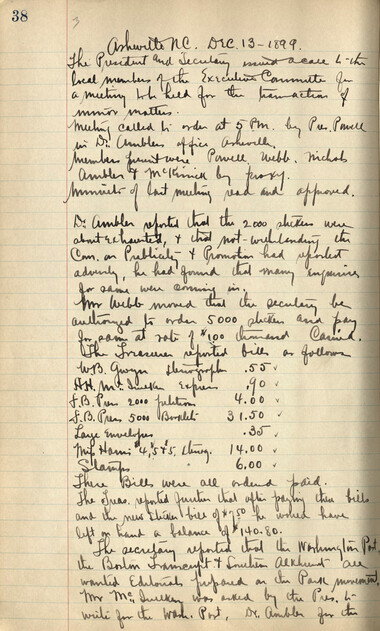 38
3
Asheville N.C. DEC. 13 - 1899.
The President and Secretary issued a call to the
local members of the Executive Committee for
a meeting to be held for the transaction of
minor matters.
Meeting called to order at 5 P.M. by Pres. Powell
in Dr. Amblers office, Asheville.
Members present were Powell, Webb, Nichols
Ambler & McKissick by proxy.
Minutes of last meeting read and approved.
Dr. Ambler reported that the 2000 stickers were
about exhausted, & that not-withstanding the
Com. on Publicity & Promotion had reported
adversely, he had found that many enquiries
for same were coming in.
Mr Webb moved that the secretary be
authorized to order 5000 stickers and pay
for same at rate of $1.00 thousand Carried.
The Treasurer reported bills as follows
W.B. Gwyn Stenographer .55 ✓
H.H. Express .90 ✓
F.B. Press 2000 petitions 4.00 ✓
F.B. Press 5000 Booklets 31.50 ✓
Large Envelopes .35 ✓
Miss Harris Stenog. 14.00 ✓
Stamps " 6.00 ✓
These Bills were all ordered paid.
The Treas. reported further that after paying these bills
and the new sticker bill of he would have
left on hand a balance of $140.80.
The secretary reported that the Washington Post,
the Boston Transcript & Southern all
wanted Editorials prepared on the Park movement.
Mr was asked by the Pres. to
write for the Wash. Post, Dr. Ambler for the